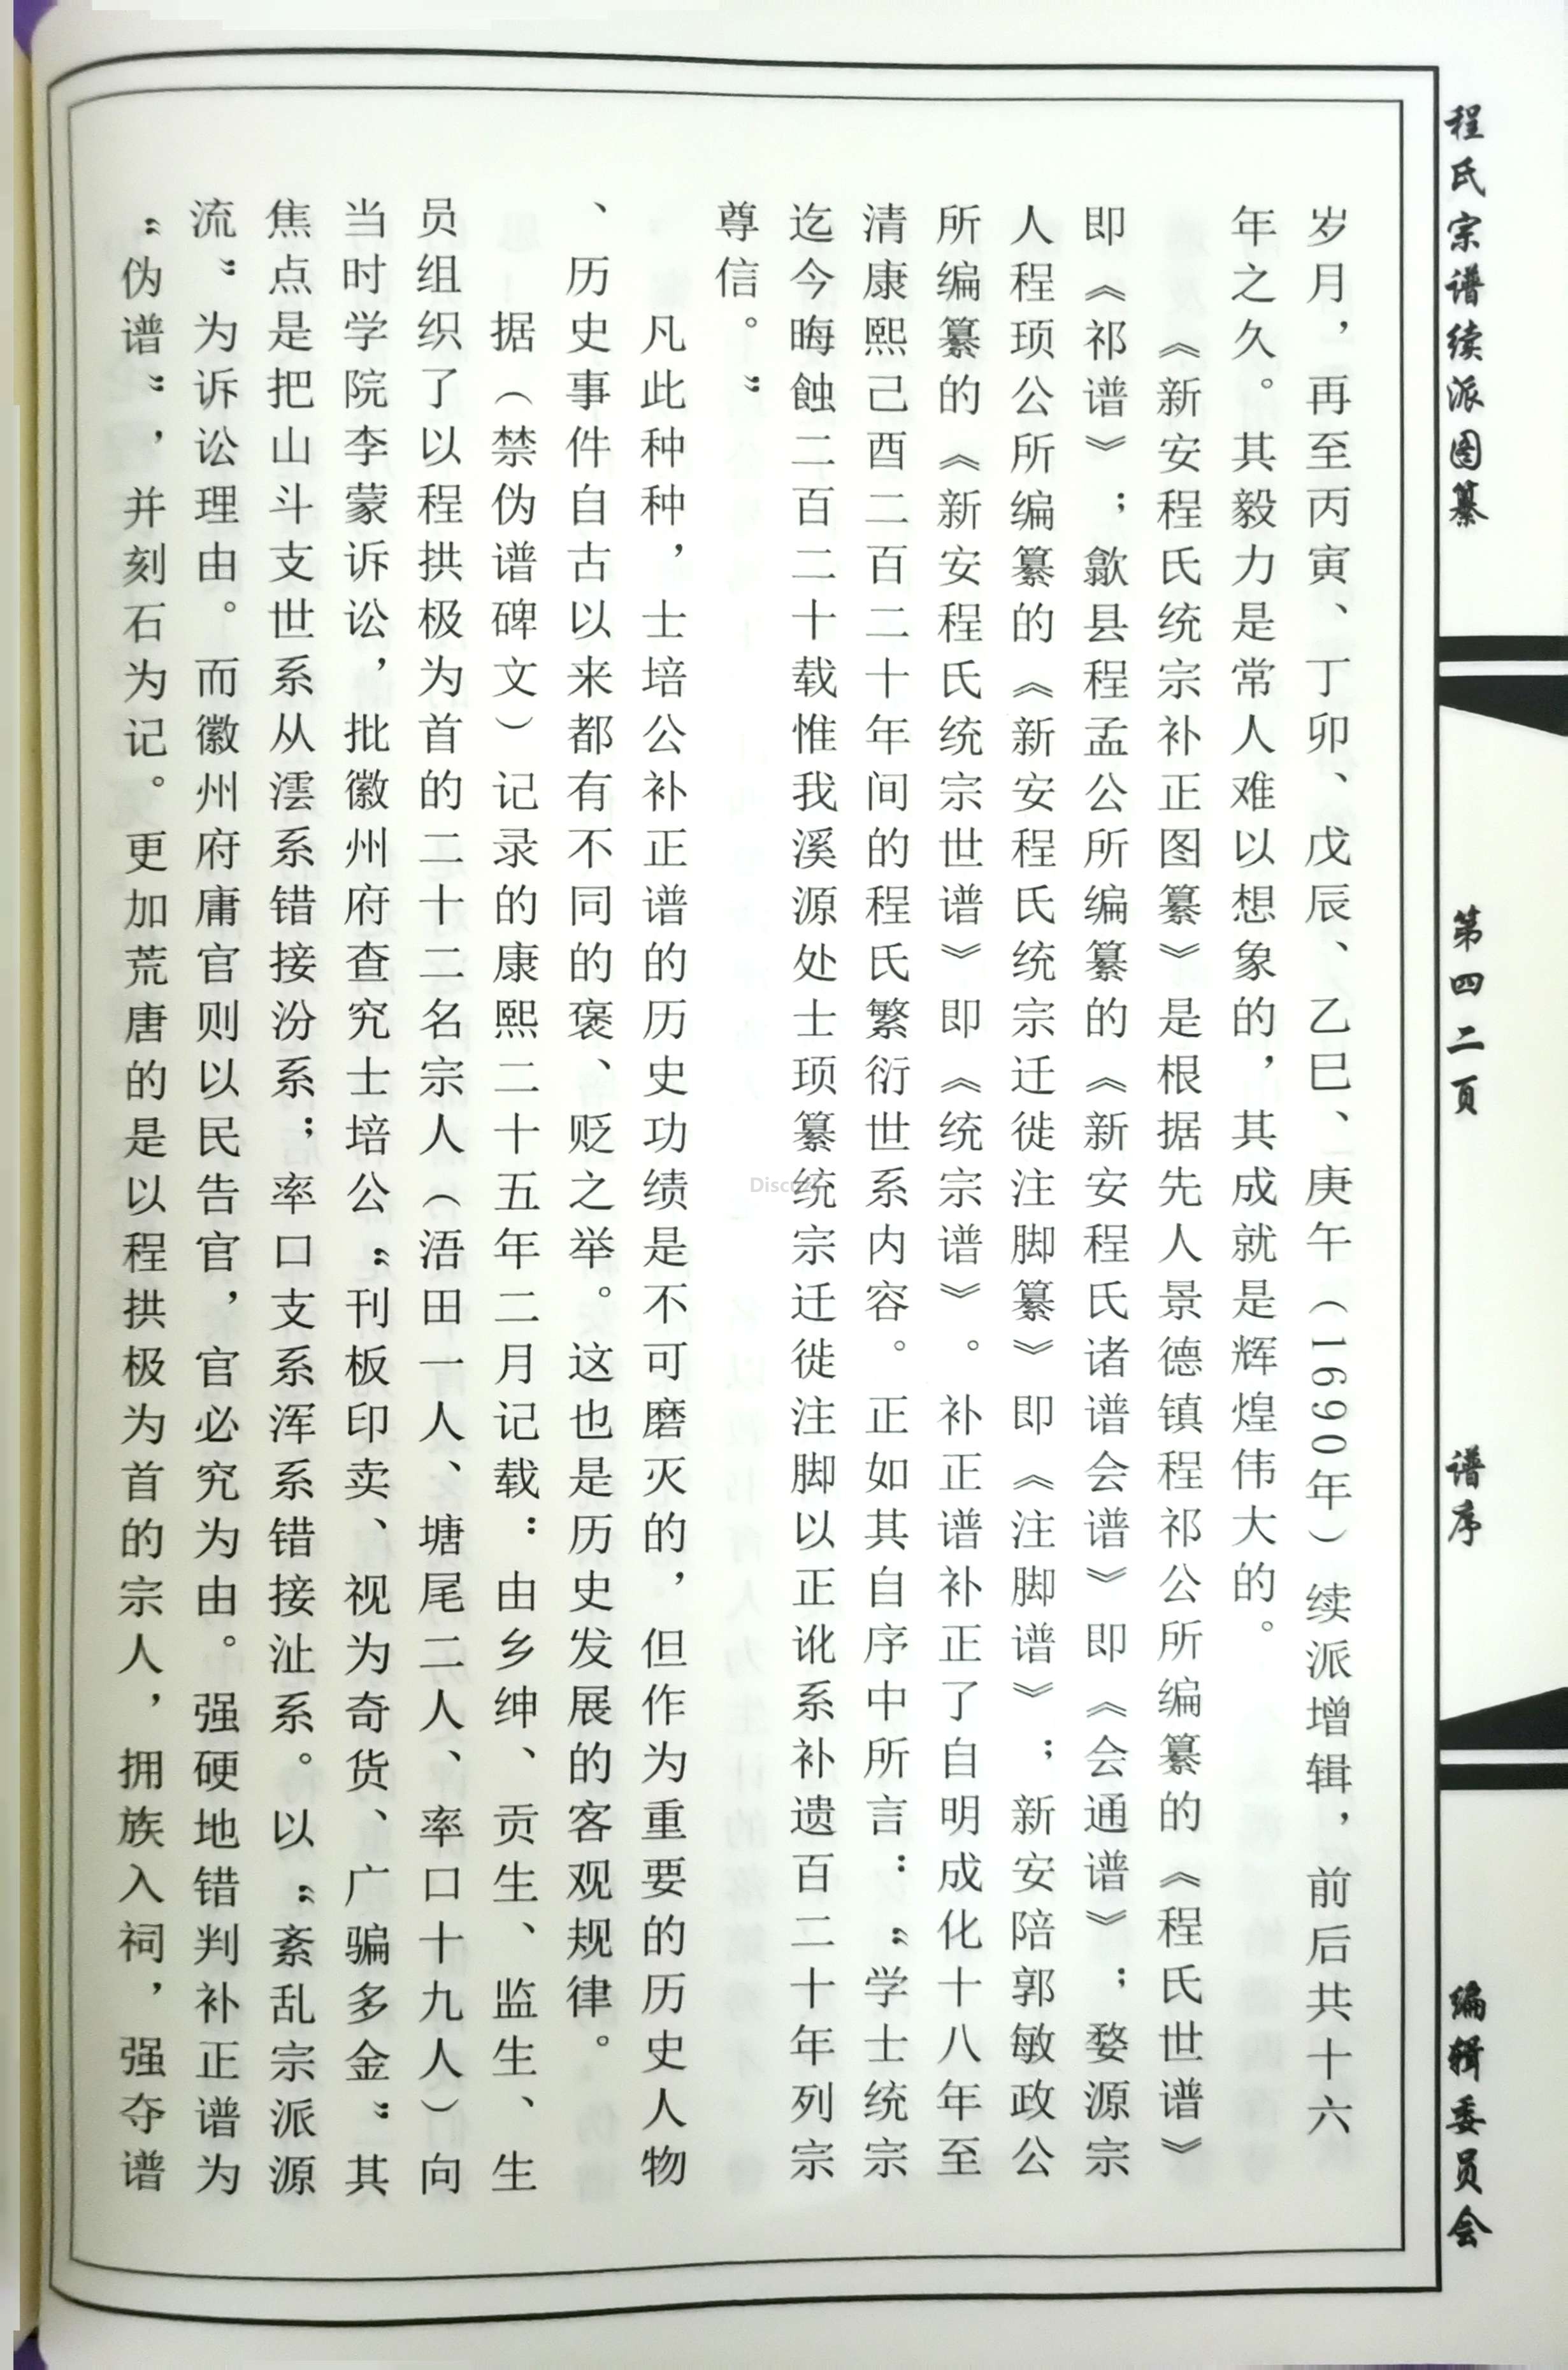 程氏宗谱续派图纂
第四二页
谱序
编辑委员会
岁月，再至丙寅、丁卯、戊辰、乙巳、庚午（1690年）续派增辑，前后共十六
年之久。其毅力是常人难以想象的，其成就是辉煌伟大的。
《新安程氏统宗补正图纂》是根据先人景德镇程祁公所编纂的《程氏世谱》
即《祁谱》；歙县程孟公所编纂的《新安程氏诸谱会谱》即《会通谱》；婺源宗
人程顼公所编纂的《新安程氏统宗迁徙注脚纂》即《注脚谱》；新安陪郭敏政公
所编纂的《新安程氏统宗世谱》即《统宗谱》。补正谱补正了自明成化十八年至
清康熙己酉二百二十年间的程氏繁衍世系内容。正如其自序中所言：“学士统宗
迄今晦蚀二百二十载惟我溪源处士顼纂统宗迁徙注脚以正讹系补遗百二十年列宗
尊信。”
凡此种种，士培公补正谱的历史功绩是不可磨灭的，但作为重要的历史人物
、历史事件自古以来都有不同的褒、贬之举。这也是历史发展的客观规律。
据（禁伪谱碑文）记录的康熙二十五年二月记载：由乡绅、贡生、监生、生
员组织了以程拱极为首的二十二名宗人（浯田一人、塘尾二人、率口十九人）向
当时学院李蒙诉讼，批徽州府查究士培公“刊板印卖、视为奇货、广骗多金”其
焦点是把山斗支世系从澐系错接汾系；率口支系浑系错接沚系。以“紊乱宗派源
流”为诉讼理由。而徽州府庸官则以民告官，官必究为由。强硬地错判补正谱为
“伪谱”，并刻石为记。更加荒唐的是以程拱极为首的宗人，拥族入祠，强夺谱
Discuz!